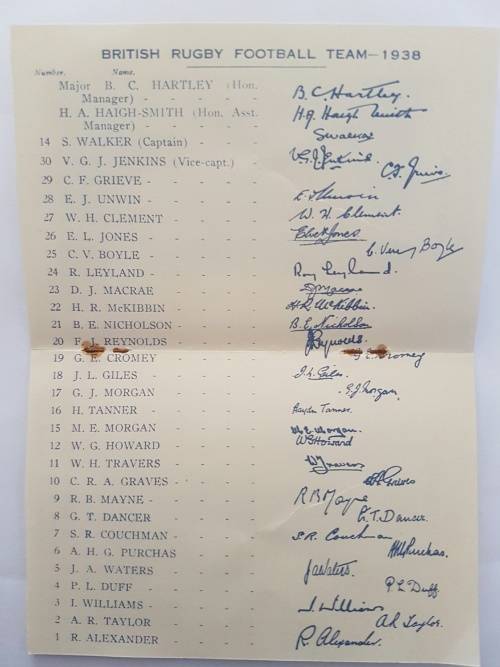 BRITISH RUGBY FOOTBALL TEAM—1938
Number. Name.
Major B. C. HARTLEY (Hon. B. C. Hartley.
Manager) - - - -
H. A. HAIGH-SMITH (Hon. Asst. H.A. Haigh Smith
Manager) - - - -
14 S. WALKER (Captain) - - - SWalker
30 V. G. J. JENKINS (Vice-capt.) - - V.G.J. Jenkins
29 C. F. GRIEVE - - - - - C.F. Grieve.
28 E. J. UNWIN - - - - - E.J. Unwin
27 W. H. CLEMENT - - - - W. H. Clement.
26 E. L. JONES - - - - - Jones
25 C. V. BOYLE - - - - - C. Very Boyle
24 R. LEYLAND - - - - - Roy Leyland.
23 D. J. MACRAE - - - - DJMacrae
22 H. R. McKIBBIN - - - - H.R. McKibbin.
21 B. E. NICHOLSON - - - - B. E. Nicholson
20 F. J. REYNOLDS - - - - Reynolds.
19 G. E. CROMEY - - - - G.E. Cromey
18 J. L. GILES - - - - - J. L. Giles.
17 G. J. MORGAN - - - - G.J. Morgan.
16 H. TANNER - - - - - Haydn Tanner.
15 M. E. MORGAN - - - - M.E. Morgan.
12 W. G. HOWARD - - - - WGHoward
11 W. H. TRAVERS - - - - WTravers
10 C. R. A. GRAVES - - - - Graves
9 R. B. MAYNE - - - - - R B Mayne
8 G. T. DANCER - - - - - G.T. Dancer.
7 S. R. COUCHMAN - - - - S.R. Couchman
6 A. H. G. PURCHAS - - - - Purchas.
5 J. A. WATERS - - - - JAWaters.
4 P. L. DUFF - - - - - P L Duff.
3 I. WILLIAMS - - - - - I. Williams
2 A. R. TAYLOR - - - - A R Taylor.
1 R. ALEXANDER - - - - R. Alexander.